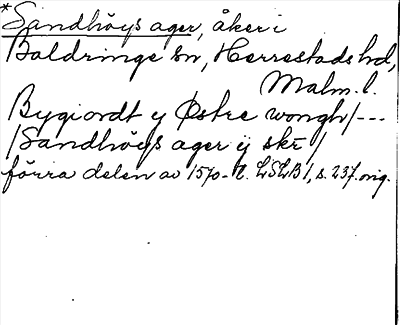 *Sandhöys ager, åker i
Baldringe sn, Herrestads hd,
Malm. l.
Bygiordt y Østre wongh/---
/Sandhöys ager ij skr /
förra delen av 1570-t. LSLB 1, s. 237. orig.